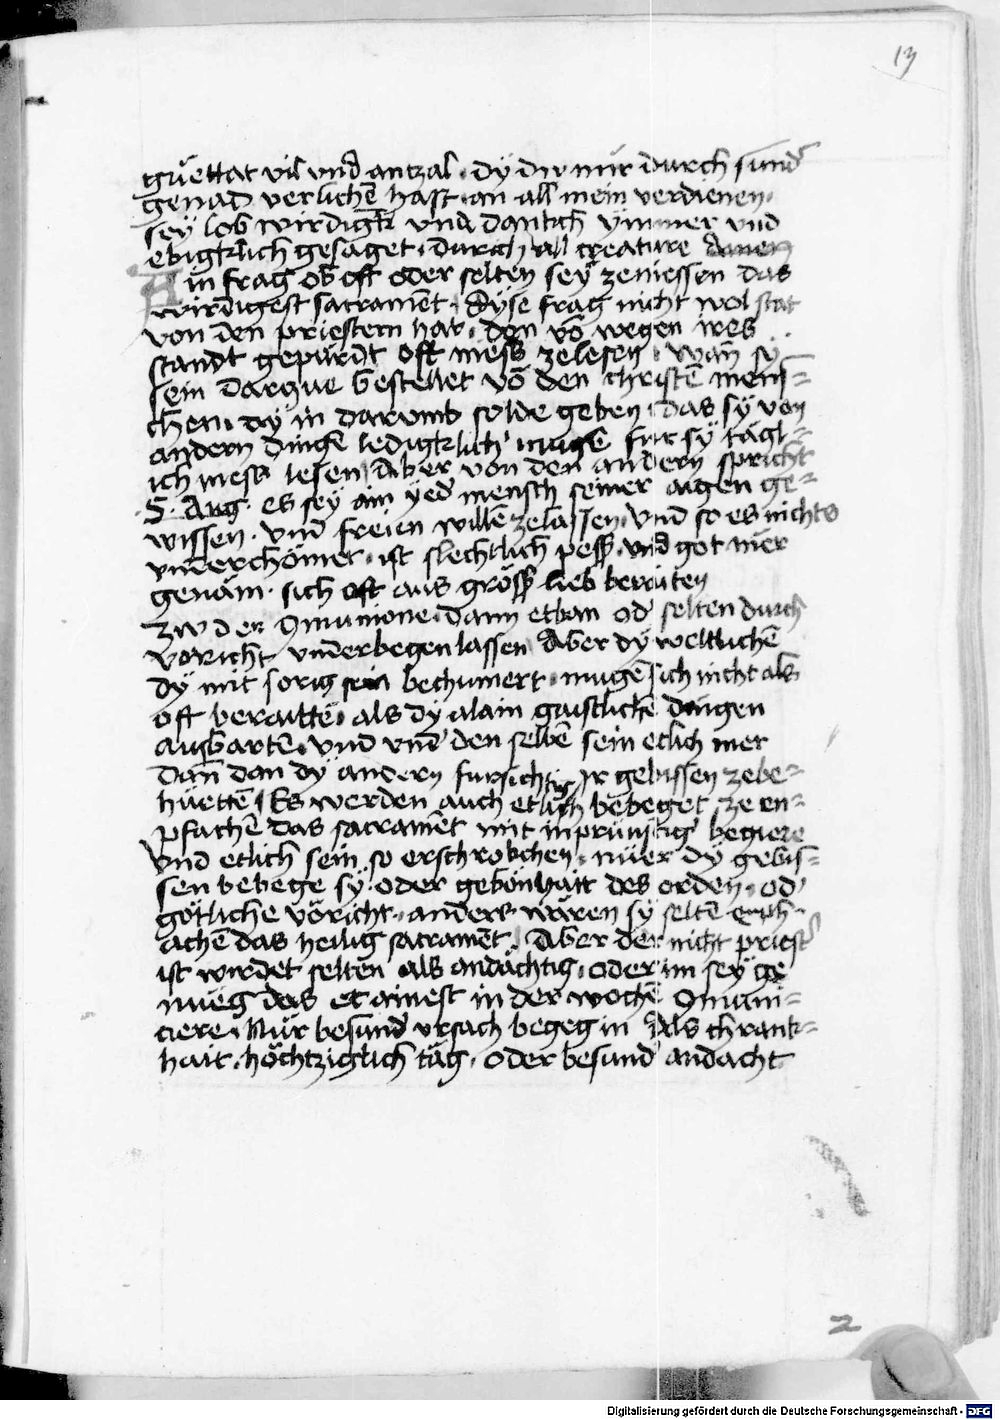 13
guettat vil vnd antzal · dy du mir durch sund
genad verlichē hast · an all mein verdienen ·
sey lob wirdigkt vnd danckh ymmer vnd
ebigkrlich gesaget · durich all creature Amen
Ain frag ob oft oder selten sey zeniessen das
wirdigest sacramēt · dyse frag nicht wol stat
von den priestern hab · den vō wegen ires
standt gepürdt oft mess zelesen · wan sy
sein darzue bestellet vō den christē mens-
chen · dy in darumb solde geben · das sy von
andern dingē ledigkrlich mugē fur sy tägl-
ich mess lesen Aber von den andern spricht
· S · Aug · es sey ain yed mensch seiner aigen ge-
wissen · vnd freien willē zelassen · vnd so es nichts
vnderchömet · ist slechtlich pess · vnd got mer
genäm · sich oft aus gröss lieb beraiten
zw der 9munione · dann etban od selten durch
voricht vnderbegen lassen Aber dy weltlichē
dy mit sorig sein bechumert · mugē sich nicht als
oft beraittē · als dy alain gaistlichē dingen
ausbartē · vnd vnd den selbē sein etlich mer
dan dan dy andern fursichtig Ir gebissen zebe-
huettē Es werden auch etlich bebeget ze en-
pfachē das sacramēt mit inprunstigʼ begiere
vnd etlich sein so erschrobchen · nuer dy gebis-
sen bebege sy · oder gebönhait des orden · od
götliche vöricht · anders wären sy seltē emph-
achē das heilig sacramēt · Aber der nicht priest
ist wirdet selten als andächtig · oder im sey ge
nueg das er ainest in der wochē 9muni-
ciere · Nur besund vrsach begeg in Als chrank-
hait · höchtziglich täg · oder besund andacht
2
Digitalisierung gefördert durch die Deutsche Forschungsgemeinschaft - DFG